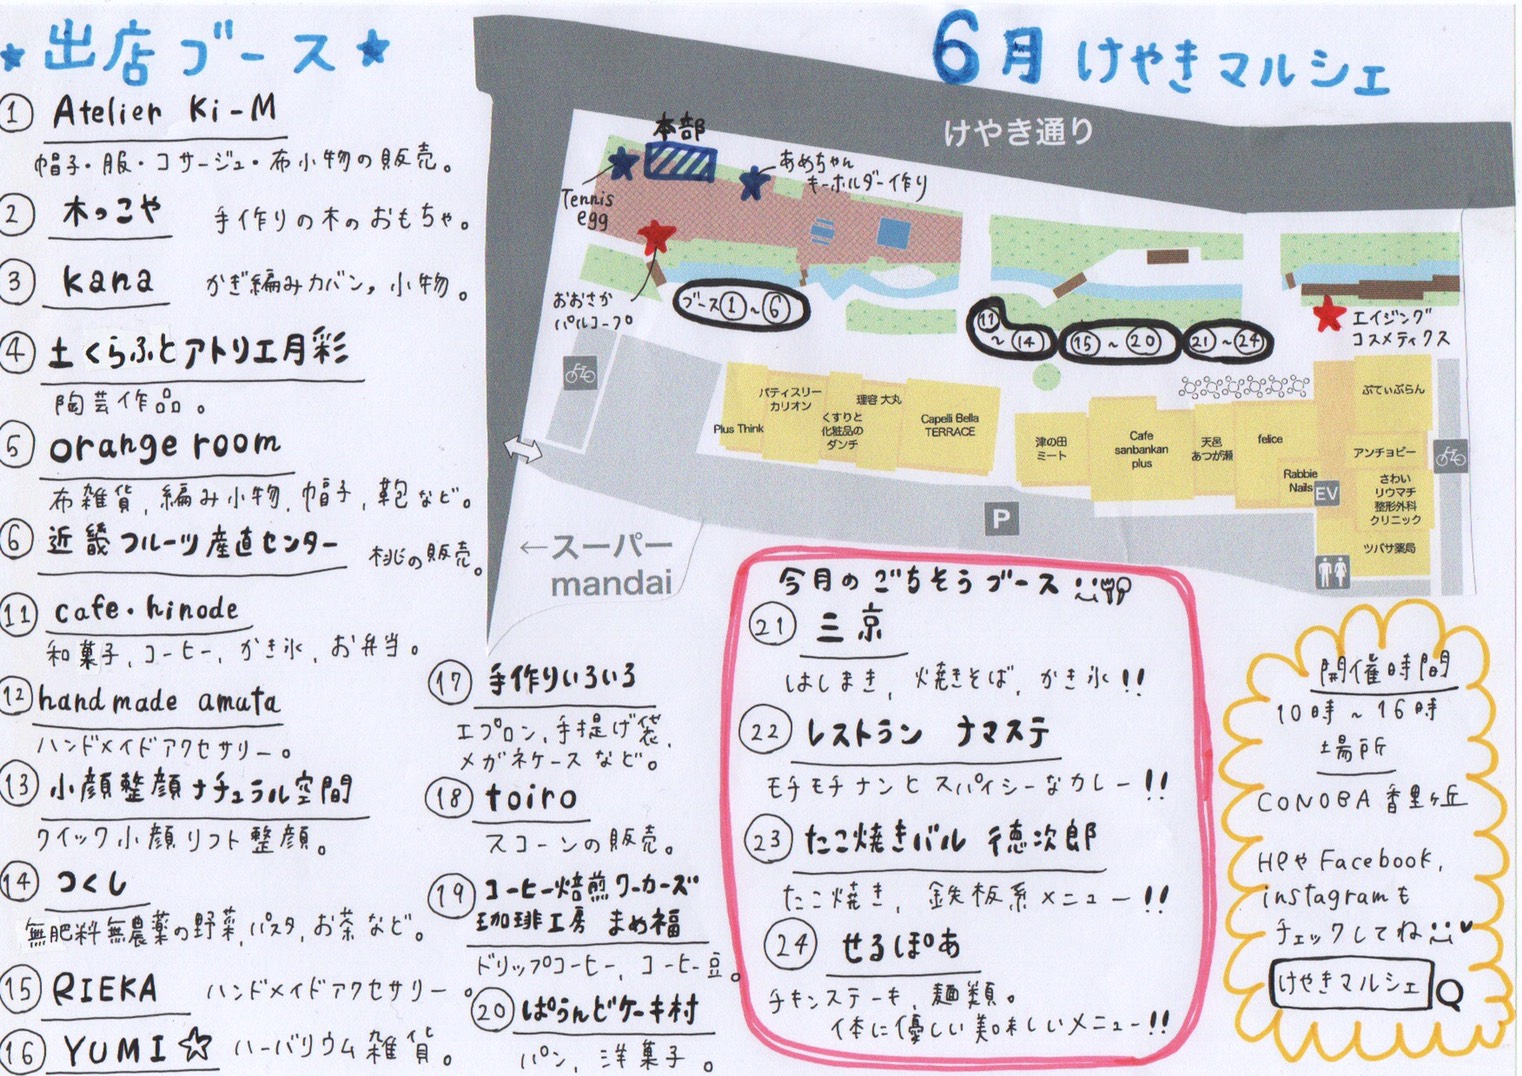 ★出店ブース★
① Atelier Ki-M
帽子・服・コサージュ・布小物の販売。
② 木っこや 手作りの木のおもちゃ。
③ kana かぎ編みカバン,小物。
④ 土くらふとアトリエ月彩
陶芸作品。
⑤ orange room
布雑貨,編み小物,帽子,鞄など。
⑥ 近畿フルーツ産直センター 桃の販売。
⑪ cafe・hinode
和菓子,コーヒー,かき氷,お弁当。
⑫ handmade amata
ハンドメイドアクセサリー。
⑬ 小顔整顔ナチュラル空間
クイック小顔リフト整顔。
⑭ つくし
無肥料無農薬の野菜,パスタ,お茶など。
⑮ RIEKA ハンドメイドアクセサリー。
⑯ YUMI☆ ハーバリウム雑貨。
⑰ 手作りいろいろ
エプロン,手提げ袋,
メガネケースなど。
⑱ toiro
スコーンの販売。
⑲ コーヒー焙煎ワーカーズ
珈琲工房 まめ福
ドリップコーヒー,コーヒー豆。
⑳ ぱうんどケーキ村
パン,洋菓子。
6月けやきマルシェ
けやき通り
本部
あめちゃん
キーホルダー作り
Tennis
egg
おおさか
パルコープ
ブース①~⑥
⑪
~⑭
⑮~⑳
㉑~㉔
エイジング
コスメティクス
Plus Think
パティスリー
カリオン
くすりと
化粧品の
ダンチ
理容 大丸
Capelli Bella
TERRACE
津の田
ミート
Cafe
sanbankan
plus
天呂
あつが瀬
felice
Rabbie
Nails
EV
ぷてぃぶらん
アンチョビー
さわい
リウマチ
整形外科
クリニック
ツバサ薬局
P
←スーパー
mandai
今月のごちそうブース
㉑ 三京
はしまき,焼きそば,かき氷!!
㉒ レストラン ナマステ
モチモチナンとスパイシーなカレー!!
㉓ たこ焼きバル 徳次郎
たこ焼き,鉄板系メニュー!!
㉔ せるぽあ
チキンステーキ,麺類。
体に優しい美味しいメニュー!!
開催時間
10時~16時
場所
CONOBA香里ヶ丘
HPやFacebook,
instagramも
チェックしてね
けやきマルシェ